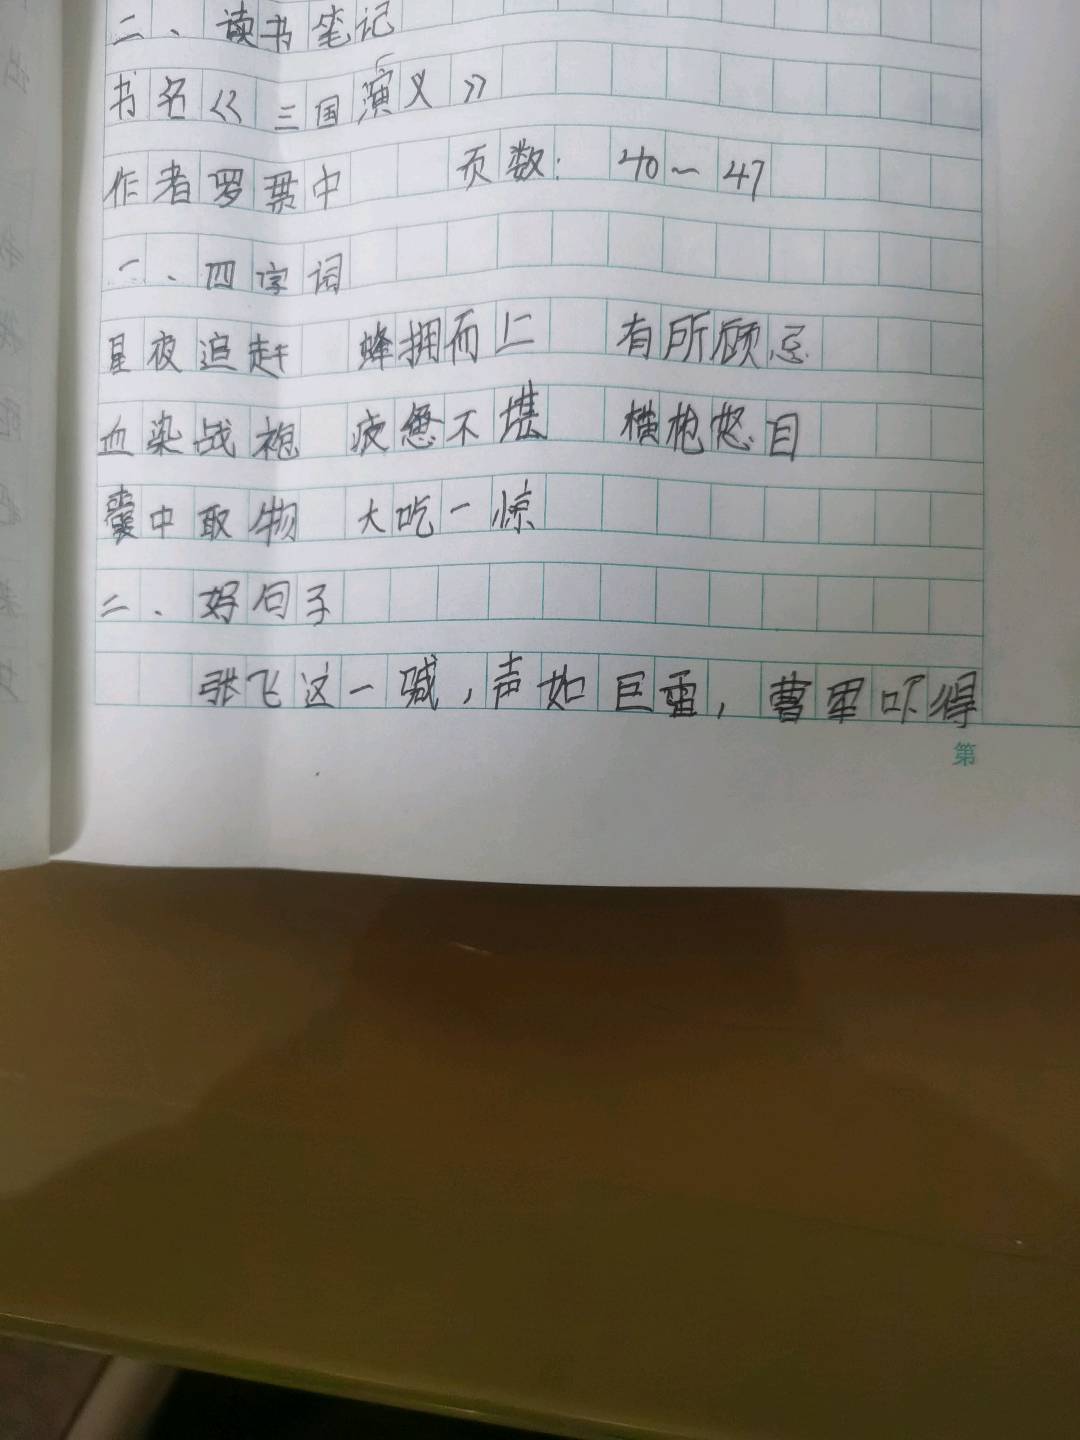 二、读书笔记
书名《三国演义》
作者罗贯中 页数: 40~47
一、四字词
星夜追赶 蜂拥而上 有所顾忌
血染战袍 疲惫不堪 横枪怒目
囊中取物 大吃一惊
二、好句子
张飞这一喊,声如巨雷,曹军吓得
第